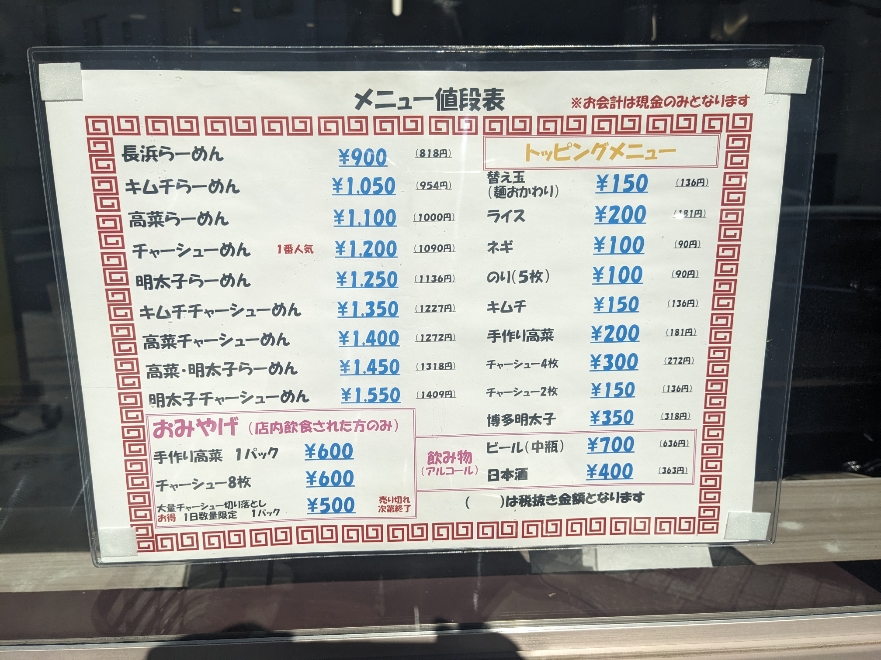 メニュー値段表
※お会計は現金のみとなります
長浜らーめん ¥900 (818円)
キムチらーめん ¥1.050 (954円)
高菜らーめん ¥1.100 (1000円)
チャーシューめん 1番人気 ¥1.200 (1090円)
明太子らーめん ¥1.250 (1136円)
キムチチャーシューめん ¥1.350 (1227円)
高菜チャーシューめん ¥1.400 (1272円)
高菜・明太子らーめん ¥1.450 (1318円)
明太子チャーシューめん ¥1.550 (1409円)
おみやげ (店内飲食された方のみ)
手作り高菜 1パック ¥600
チャーシュー8枚 ¥600
大量チャーシュー切り落とし
お得 1日数量限定 1パック ¥500 売り切れ
次第終了
トッピングメニュー
替え玉
(麺おかわり) ¥150 (136円)
ライス ¥200 (181円)
ネギ ¥100 (90円)
のり(5枚) ¥100 (90円)
キムチ ¥150 (136円)
手作り高菜 ¥200 (181円)
チャーシュー4枚 ¥300 (272円)
チャーシュー2枚 ¥150 (136円)
博多明太子 ¥350 (318円)
飲み物
(アルコール)
ビール(中瓶) ¥700 (636円)
日本酒 ¥400 (363円)
( )は税抜き金額となります